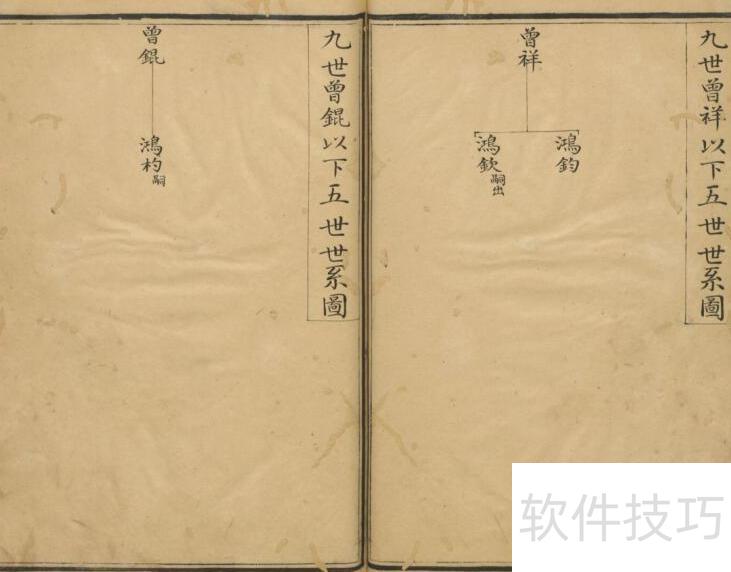 九世曾祥以下五世世系圖
曾祥
鴻鈞
鴻欽嗣出
九世曾錕以下五世世系圖
曾錕
鴻杓嗣
软件技巧